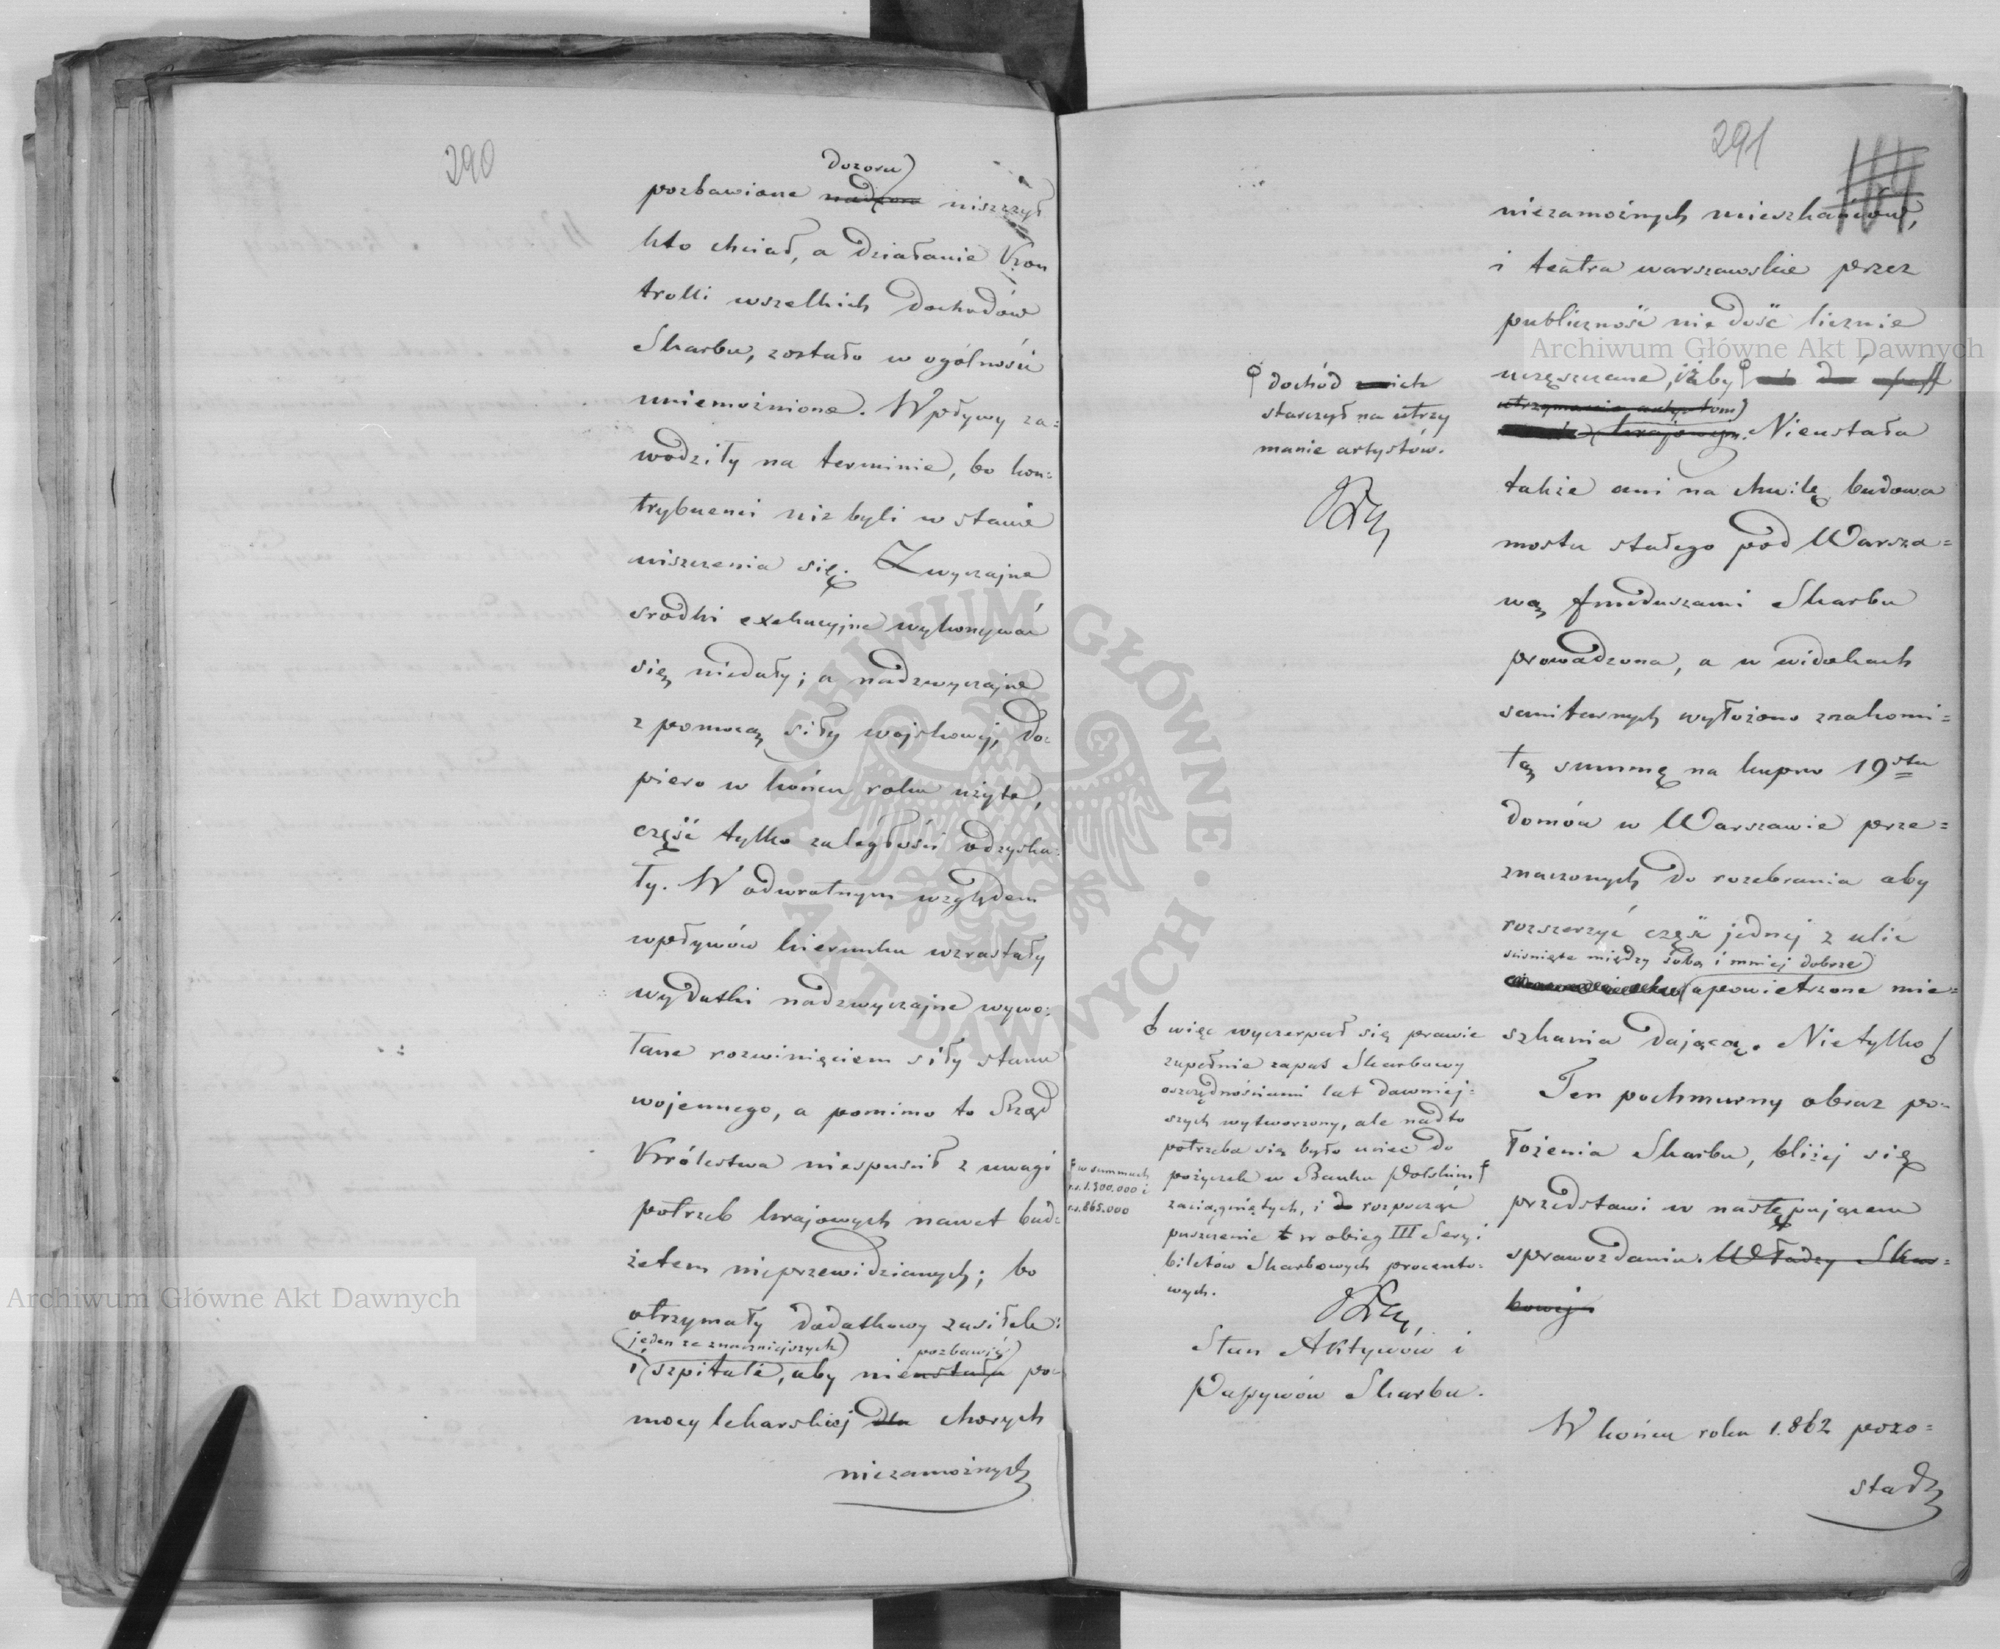 290
dozoru
pozbawione nadzoru niszczył
kto chciał, a działanie Kon
trolli wszelkich dochodów
Skarbu, zostało w ogólności
uniemożnione. Wpływy za=
wodziły na terminie, bo kon=
trybuenci nie byli w stanie
uiszczenia się. Zwyczajne
srodki exekucyjne wykonywać
się niedały; a nadzwyczajne
z pomocą siły wojskowej, do=
piero w końcu roku użyte,
część tylko zaległości odzyska=
ły. W odwrotnym względem
wpływów kierunku wzrastały
wydatki nadzwyczajne wywo=
łane rozwinięciem siły stanu
wojennego, a pomimo to Rząd
Królestwa niespuścił z uwagi
potrzeb krajowych nawet bud=
żetem nieprzewidzianych; bo
otrzymały dodatkowy zasiłek:
jeden ze znaczniejszych pozbawić
i szpitale, aby nieustała po=
mocy lekarskiej dla chorych
niezamożnych
291
164
niezamożnych mieszkańców,
i teatra warszawskie przez
publiczność nie dość licznie
uczęszczane, iżby do
utrzymania artystom
krajowym. Nieustała
także ani na chwilę budowa
mostu stałego pod Warsza=
wą funduszami Skarbu
prowadzona, a w widokach
sanitarnych wyłożono znakomi=
tą summę na kupno 19stu
domów w Warszawie prze=
znaczonych do rozebrania aby
rozszerzyć część jednej z ulic
ścisnięte między sobą i mniej dobrze
apowietrzone mie=
szkania dającą. Nietylko
Ten pochmurny obraz po=
łożenia Skarbu, bliżej się
przedstawi w następującem
sprawozdaniu. Władzy Skar=
bowej
W końcu roku 1.862 pozo=
stały
dochód z nich
starczył na utrzy
manie artystów.
więc wyczerpał się prawie
zupełnie zapas Skarbowy
oszczędnościami lat dawniej=
szych wytworzony, ale nadto
potrzeba się było uciec do
pożyczek w Banku Polskim
zaciągniętych, i do rozpocząć
puszczenie w obieg III Seryi
biletów Skarbowych procento=
wych.
w summach
r.s. 1.300.000 i
r.s. 865.000
Stan Aktywów i
Passywów Skarbu.
Archiwum Główne Akt Dawnych
Archiwum Główne Akt Dawnych
ARCHIWUM GŁÓWNE
AKT DAWNYCH